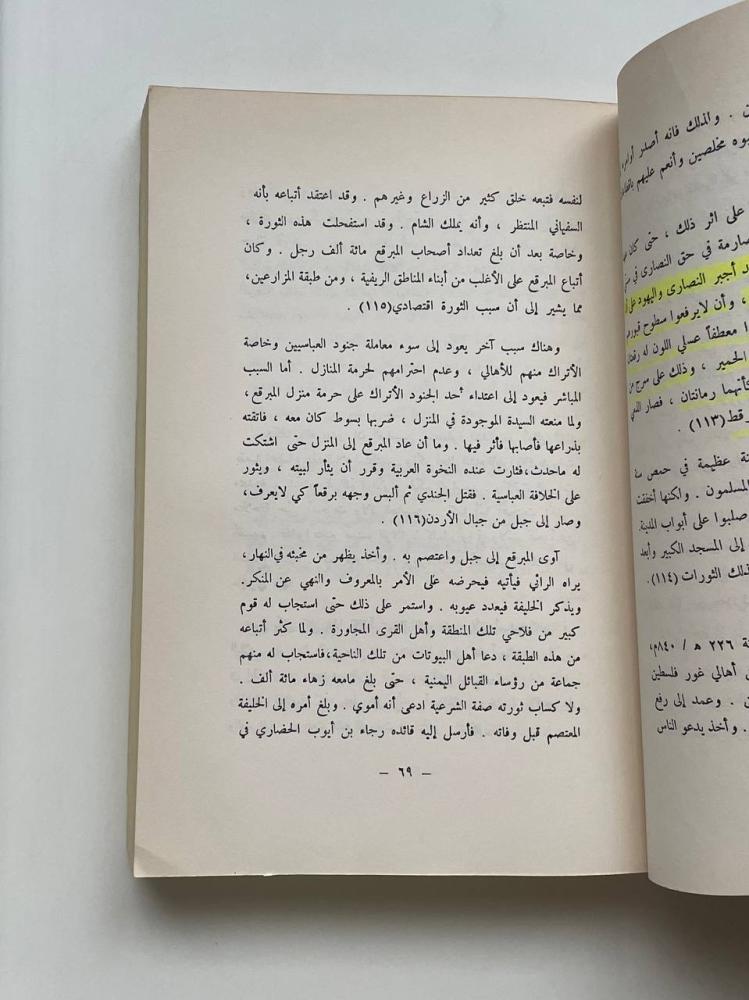 . ولذلك فانه أصدر أوامره
مخلصين وأنعم عليهم
على اثر ذلك ، حتى كان
صارمة في حق النصارى في
أجبر النصارى واليهود على
، وأن لايرفعوا سطوح قبورهم
معطفاً عسلي اللون له
الحمير ، وذلك على سرج من
كأنهما رمانتان ، فصار
(١١٣) .
عظيمة في حمص سنة
المسلمون . ولكنها أخفقت
صلبوا على أبواب المدينة.
إلى المسجد الكبير وأبعد
الثورات (١١٤).
٢٢٦ هـ / ٨٤٠م،
أهالي غور فلسطين
. وعمد إلى رفع
. وأخذ يدعو الناس
لنفسه فتبعه خلق كثير من الزراع وغيرهم . وقد اعتقد أتباعه بأنه
السفياني المنتظر ، وأنه يملك الشام . وقد استفحلت هذه الثورة ،
وخاصة بعد أن بلغ تعداد أصحاب المبرقع مائة ألف رجل . وكان
أتباع المبرقع على الأغلب من أبناء المناطق الريفية ، ومن طبقة المزارعين،
مما يشير إلى أن سبب الثورة اقتصادي(١١٥) .
وهناك سبب آخر يعود إلى سوء معاملة جنود العباسيين وخاصة
الأتراك منهم للأهالي ، وعدم احترامهم لحرمة المنازل . أما السبب
المباشر فيعود إلى اعتداء أحد الجنود الأتراك على حرمة منزل المبرقع،
ولما منعته السيدة الموجودة في المنزل ، ضربها بسوط كان معه ، فاتقته
بذراعها فأصابها فأثر فيها . وما أن عاد المبرقع إلى المنزل حتى اشتكت
له ماحدث،فثارت عنده النخوة العربية وقرر أن يثأر لبيته ، ويثور
على الخلافة العباسية . فقتل الجندي ثم ألبس وجهه برقعاً كي لايعرف،
وصار إلى جبل من جبال الأردن(١١٦) .
آوى المبرقع إلى جبل واعتصم به . وأخذ يظهر من مخبئه في النهار،
يراه الرائي فيأتيه فيحرضه على الأمر بالمعروف والنهي عن المنكر.
ويذكر الخليفة فيعدد عيوبه . واستمر على ذلك حتى استجاب له قوم
كبير من فلاحي تلك المنطقة وأهل القرى المجاورة . ولما كثر أتباعه
من هذه الطبقة ، دعا أهل البيوتات من تلك الناحية،فاستجاب له منهم
جماعة من رؤساء القبائل اليمنية ، حتى بلغ مامعه زهاء مائة ألف .
ولا كساب ثورته صفة الشرعية ادعى أنه أموي . وبلغ أمره إلى الخليفة
المعتصم قبل وفاته . فأرسل إليه قائده رجاء بن أيوب الحضاري في
– ٦٩ –